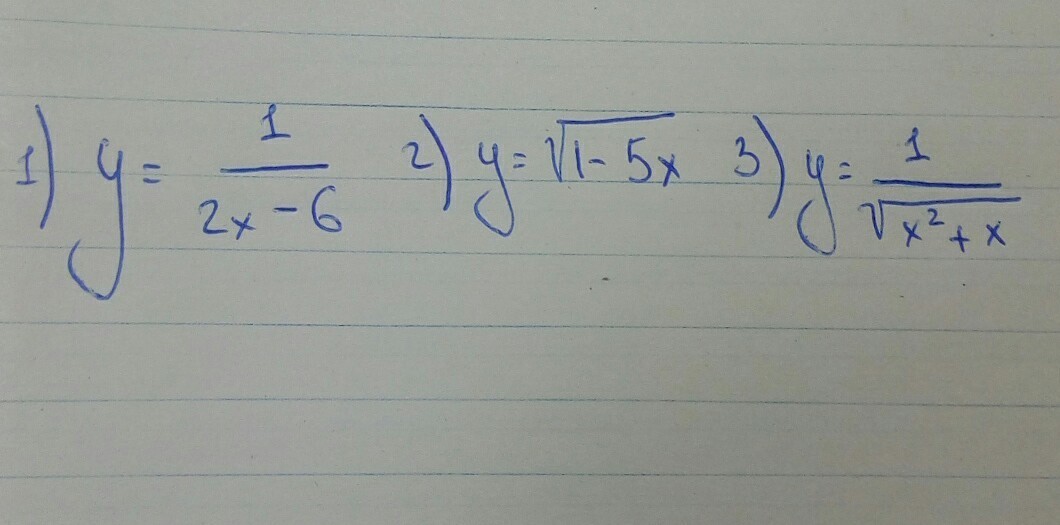 1) y = 1/(2x - 6) 2) y = √(1 - 5x) 3) y = 1/√(x² + x)